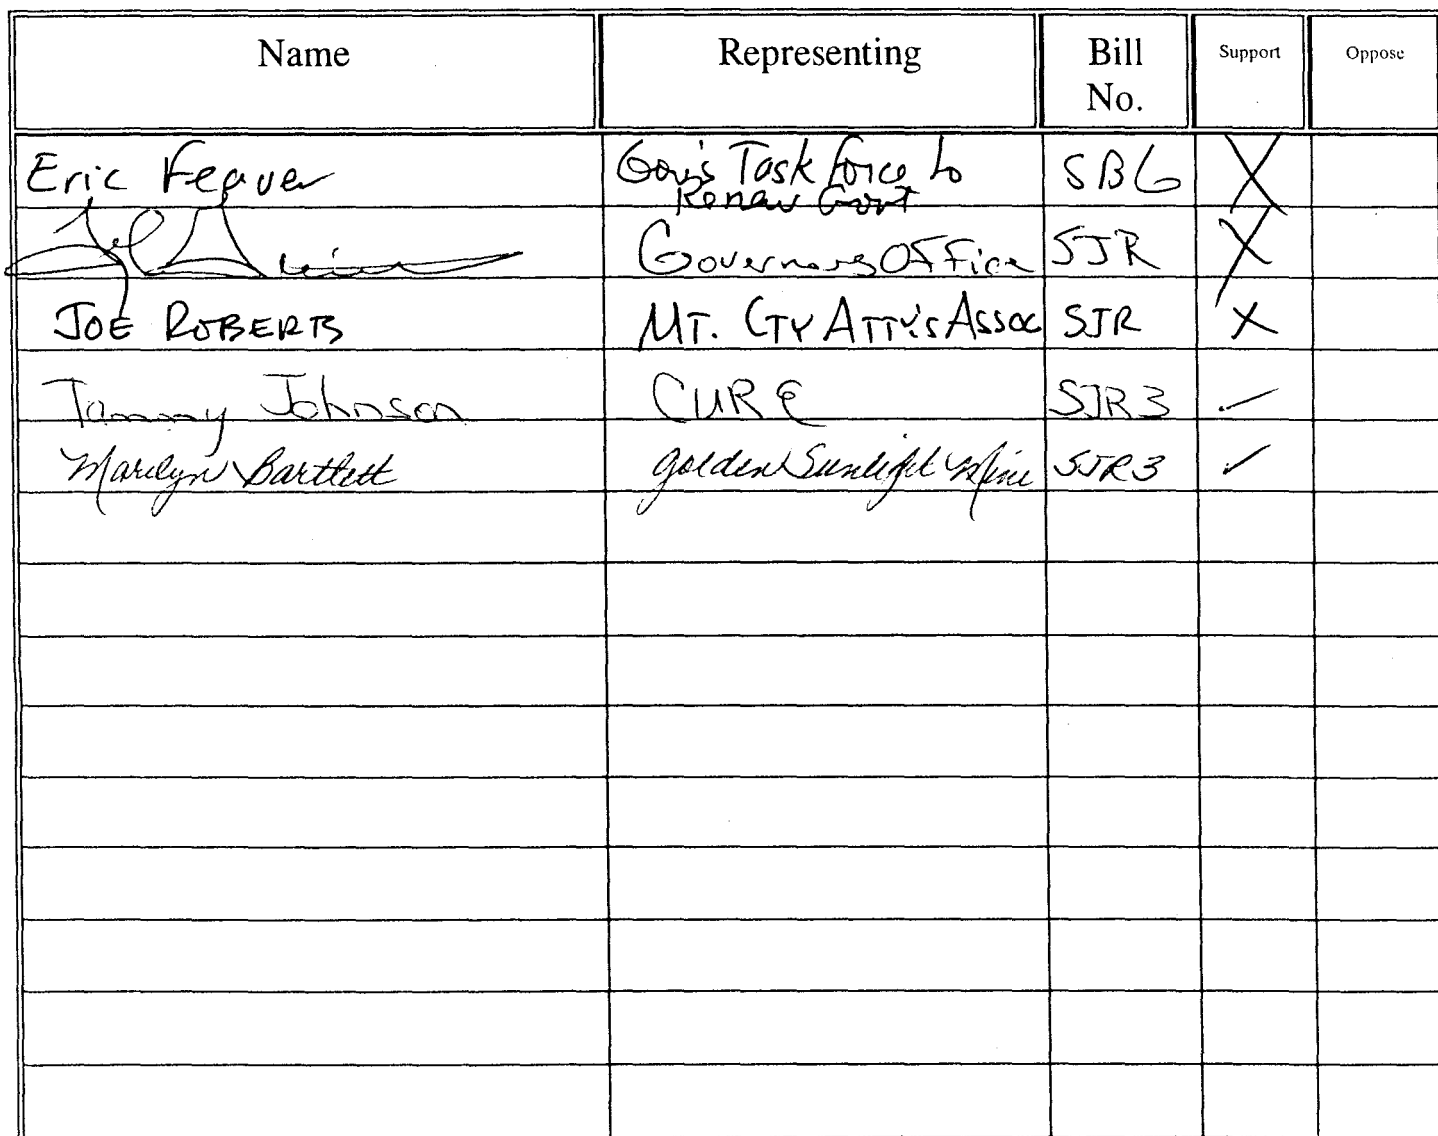 Name Representing Bill No. Support Oppose
Eric Feaver Gov's Task Force to Renew Govt SB6 X
Governors Office SJR X
JOE ROBERTS MT. CTY ATTY'S ASSOC SJR X
Tammy Johnson CURE SJR3 ✓
Marilyn Bartlett Golden Sunlight Mine SJR3 ✓